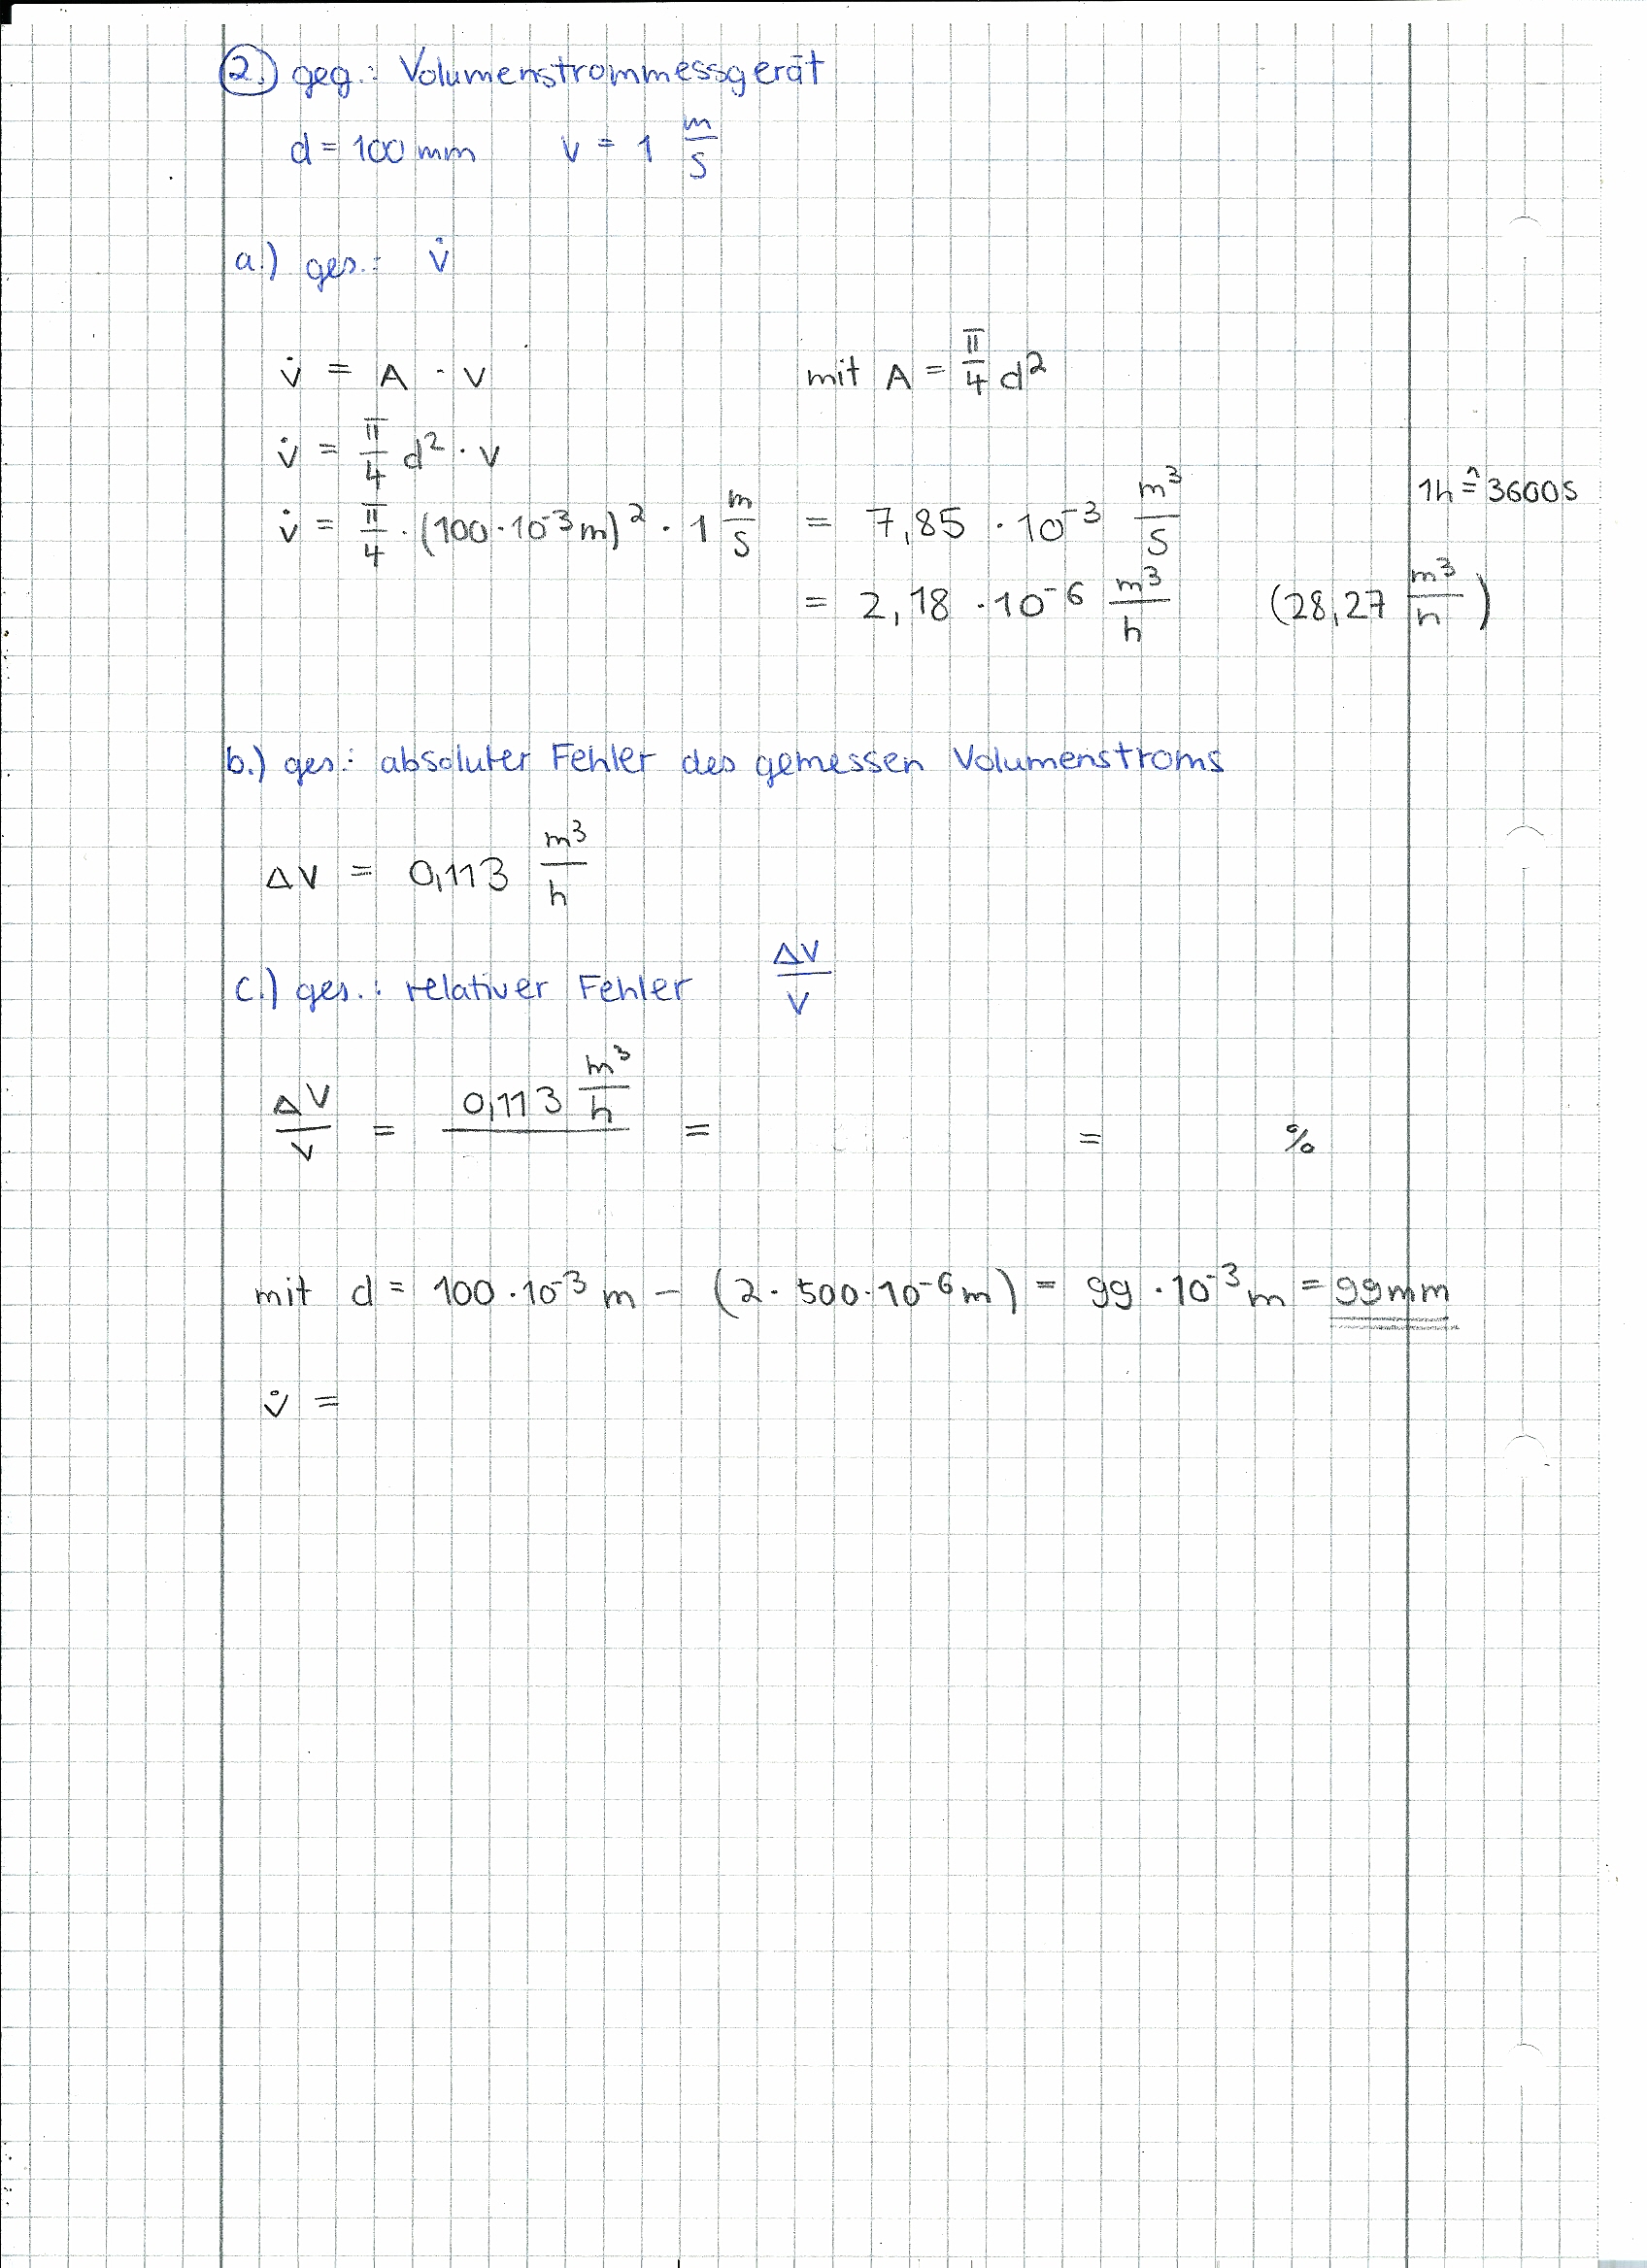 2.) geg.: Volumenstrommessgerät
d = 100 mm v = 1 m/s
a.) ges.: V̇
V̇ = A · v mit A = π/4 d²
V̇ = π/4 d² · v
1h ≙ 3600s
V̇ = π/4 · (100 · 10⁻³ m)² · 1 m/s = 7,85 · 10⁻³ m³/s
= 2,18 · 10⁻⁶ m³/h (28,27 m³/h)
b.) ges.: absoluter Fehler des gemessen Volumenstroms
ΔV = 0,113 m³/h
c.) ges.: relativer Fehler ΔV/V
ΔV/V = 0,113 m³/h / = = %
mit d = 100 · 10⁻³ m – (2 · 500 · 10⁻⁶ m) = 99 · 10⁻³ m = 99mm
V̇ =